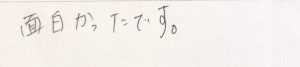 面白かったです。